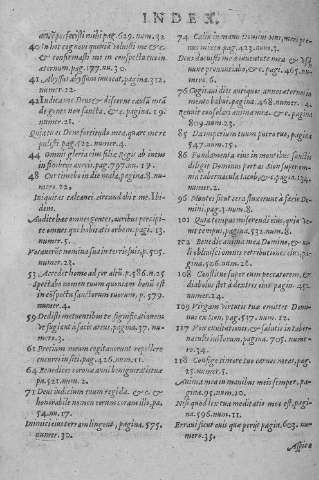 INDEX.
ame perfecisti mihi pag. 629. num. 32
40 In hoc cognoui quoniam voluisti me &c.
& confirmasti me in conspectu tuo in
æternum. pag. 177. nu. 30.
41 Abyssus abyssum inuocat, pagina. 312.
numer. 22.
42 Iudica me Deus & discerne causam meã
de gente non sancta, & c. pagina. 19.
numer. 21.
Quia tu es Deus fortitudo mea, quare me re
pulisti pag. 522. numer. 4.
44 Omnis gloria eius filiæ Regis ab intus
in fimbrijs aureis. pag. 797. nu. 19.
48 Cur timebo in die mala, pagina. 8. nu-
mero. 22,
Iniquitas calcanei circundabit me. Ibi-
dem.
Audite hæc omnes gentes, auribus percipi-
te omnes qui habitatis orbem. pag. 13.
numer. 5.
Vocauerũt nomina sua in terris suis, p. 505.
numer. 23.
53 Accedet homo ad cor altũ. p. 586. n. 25
Expectabo nomen tuum quoniam bonũ est
in conspectu sanctorum tuorum, p. 579.
numer. 4.
59 Dedisti metuentibus te significationem
vt fugiant a facie arcus, pagina. 37. nu-
mer. 3.
61 Pretium meum cogitauerunt repellere
cucurri in siti, pag. 426. num. 11.
64 Benedices coronæ anni benignitatis tuæ
pa. 521. num. 2.
71 Deus iudicium tuum regi da. & c. &
honorabile nomen eorum coram illo, pa.
54. nu. 17.
Inimici eius terram lingent, pagina, 575,
numer. 30.
74 Calix in manu Domini vini, meri ple-
nus mixto pag. 423. num. 3.
nunc præuaricabo, & c. pagi. 465. nu-
mero. 6.
76 Cogitaui dies antiquos: annos æternos in
mente habui, pagina. 468. numer. 4.
Renuit consolari anima mea, pagina.
809. num. 23.
85 Da imperium tuum puero tuo, pagina
547. num. 15.
86 Fundamenta eius in montibus sanctis
diligit Dominus portas Sion super om-
nia tabernacula Iacob, & c. pagina. 134.
numer. 2.
96 Montes sicut cera fluxerunt à facie Domi-
ni. pag. 3. num. 8.
101 Quia tempus miserendi eius, quia ve-
nit tempus, pagina. 532. num. 8.
102 Benedic anima mea Domino, & o-
108 Constitue super eum peccatorem, &
diabolus stet à dextris eius. pag. 452.
numer. 24.
109 Virgam virtutis tuæ emittet Domi-
nus ex Sion, pag. 517. num. 12.
117 Vox exultationis, & salutis in taber-
naculis iustorum, pagina. 705. nume-
ro. 34.
118 Confige timore tuo carnes meas, pag.
25. num. 20.
Anima mea in manibus meis semper, pa-
gina. 95. num. 10.
Nisi quod lex tua meditatio mea est, pagi-
na. 596. num. 11.
Erraui sicut ouis quæ perijt pagi. 603. nu-
mer. 35.
Aspice